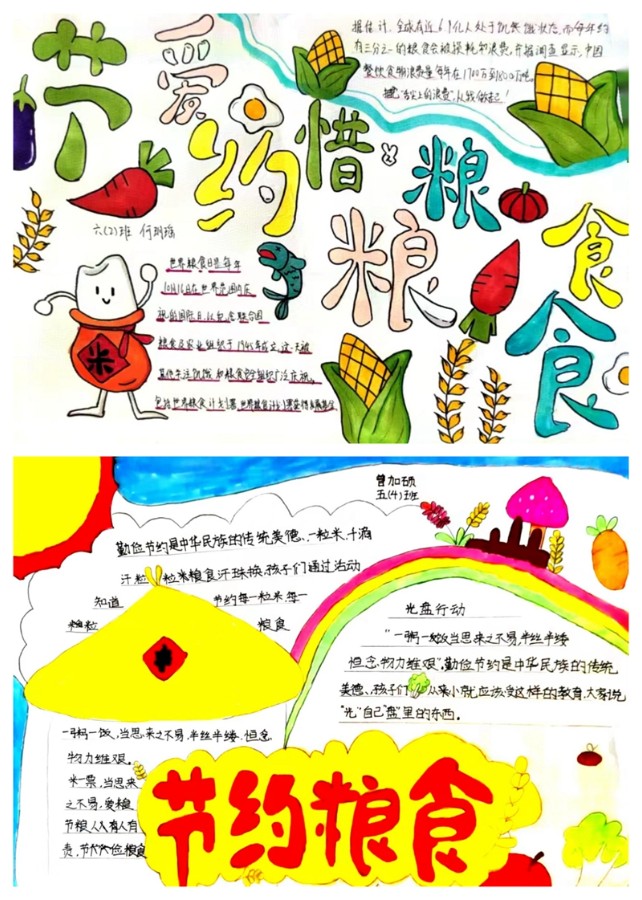 节约粮食
爱惜粮食
据估计,全球有近6.9亿人处于饥饿状态,而每年约
有三分之一的粮食会被损耗和浪费,并据调查显示,中国
餐饮食物浪费量每年在1700万到1800万吨
"舌尖上的浪费",从我做起!
六(2)班
世界粮食日是每年
10月16日在世界范围内庆
祝的国际日,以纪念联合国
粮食及农业组织于1945年成立,这一天被
其他关注饥饿和粮食安全组织广泛庆祝。
包括世界粮食计划署
米
曾加硕
五(4)班
勤俭节约是中华民族的传统美德、一粒米、十滴
汗粒粒粮食汗珠换孩子们通过活动
知道 节约每一粒米每一
粮食
光盘行动
"一粥一饭当思来之不易,半丝半缕
恒念,物力维艰",勤俭节约是中华民族的传统
美德、孩子们从小就应该受这样的教育,大家说
"光"自己"盘"里的东西。
一粥一饭,当思来之不易,半丝半缕,恒念
物力维艰。
米一票,当思来
之不易,爱粮
节粮人人有人有
责,节
节约粮食